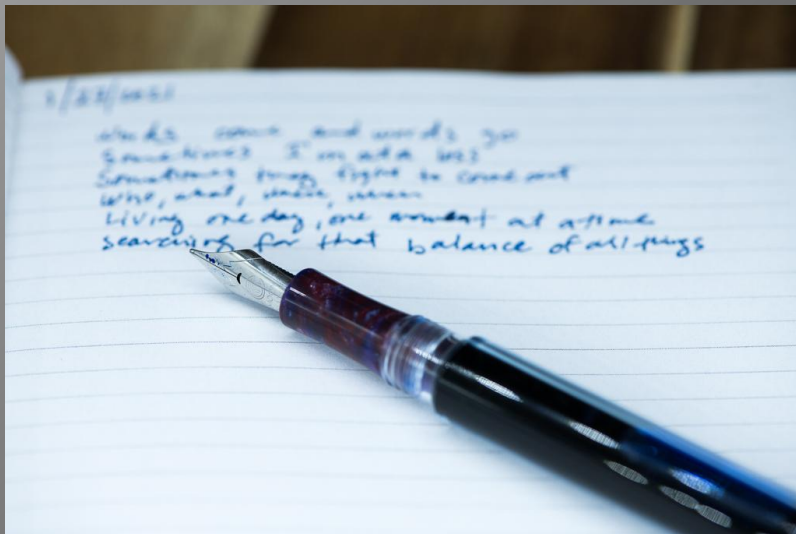 words come and words go
Sometimes I'm at a loss
Sometimes they fight to come out
Who, what, where, when
Living one day, one moment at a time
searching for that balance of all things